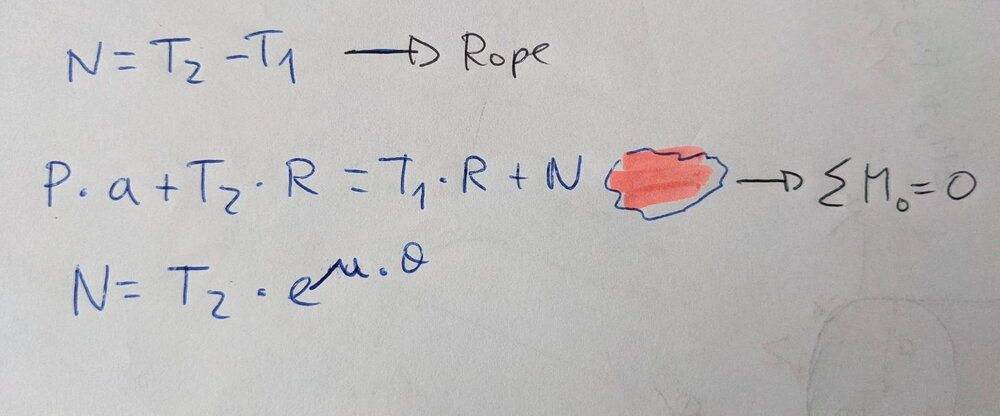 N = T₂ - T₁ → Rope
P · a + T₂ · R = T₁ · R + N → ΣM₀ = 0
N = T₂ · e^μ·θ